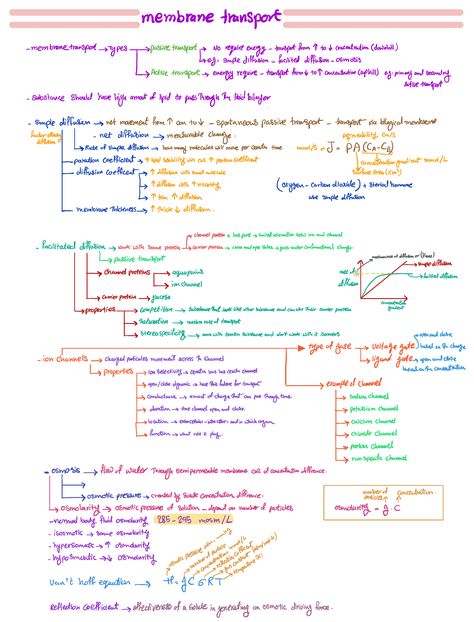 membrane transport
- membrane transport → Types → passive transport → No require energy - transport from ↑ to ↓ concentration (downhill)
→ eg:- Simple diffusion - facilited diffusion - osmosis
→ Active transport → energy require - transport from ↓ to ↑ concentration (uphill) - eg: primary and secondary active transport
- Substance should have high amount of lipid to pass through the lipid bilayer
- Simple diffusion → net movement from ↑ conc to ↓ - spontaneous passive transport - transport via biological membrane
factor affect diffusion
- net diffusion → measurable change.
→ Rate of simple diffusion → how many molecules will move per certain time.
permeability cm/s
mmol/s = J = PA(CA-CB)
concentration gradient mmol/L
Surface Area (cm²)
→ partition Coefficient → ↑ lipid solubility will cus ↑ partition coefficient
→ diffusion coefficient → ↑ diffusion with small molecule
→ ↑ diffusion with ↑ viscosity
→ ↑ tem ↑ diffusion
→ membrane thickness → ↑ thick ↓ diffusion.
(Oxygen - Carbon dioxide) + steriod hormone
use simple diffusion
- facilitated diffusion → work with some protein → Channel protein → has pore
→ carrier protein → goes under conformational change.
→ passive transport
→ channel proteins → aquaporins
→ ion channel
→ carrier protein → glucose
→ properties → Competition
→ Saturation → maximum rate of transport
→ Stereospecificity
rate of diffusion
simple diffusion
facilited diffusion
concentration gradient
- ion channels → Charged particles movement across the channel
type of gate → voltage gate → open and close based on the charge
→ ligand gate → open and close based on the concentration
→ properties → ion Selectivity → certain ion has certain channel
→ open/close dynamic
→ Conductance → amount of charge that can pass through time
→ duration → time channel open and close.
→ location
→ function → what role it play.
example of channel
→ Sodium channel
→ potassium channel
→ calcium channel
→ chloride channel
→ proton channel
→ non specific channel
- osmosis → flow of water through semipermeable membrane cus of concentration difference.
→ osmotic pressure → created by solute concentration difference.
→ osmolarity → osmotic pressure of solution - depend on number of particles.
number of particles concentration
osmolarity = g · C
- normal body fluid osmolarity 285-295 mosm/L
- isosmotic → same osmolarity
- hyperosmotic → ↑ osmolarity
- hyposmotic → ↓ osmolarity
Van't hoff equation → π = gCσRT
osmotic pressure
number of particle
concentration mmol/L
reflection coefficient
gas constant
temperature (K)
Reflection Coefficient → effectiveness of a solute in generating an osmotic driving force.